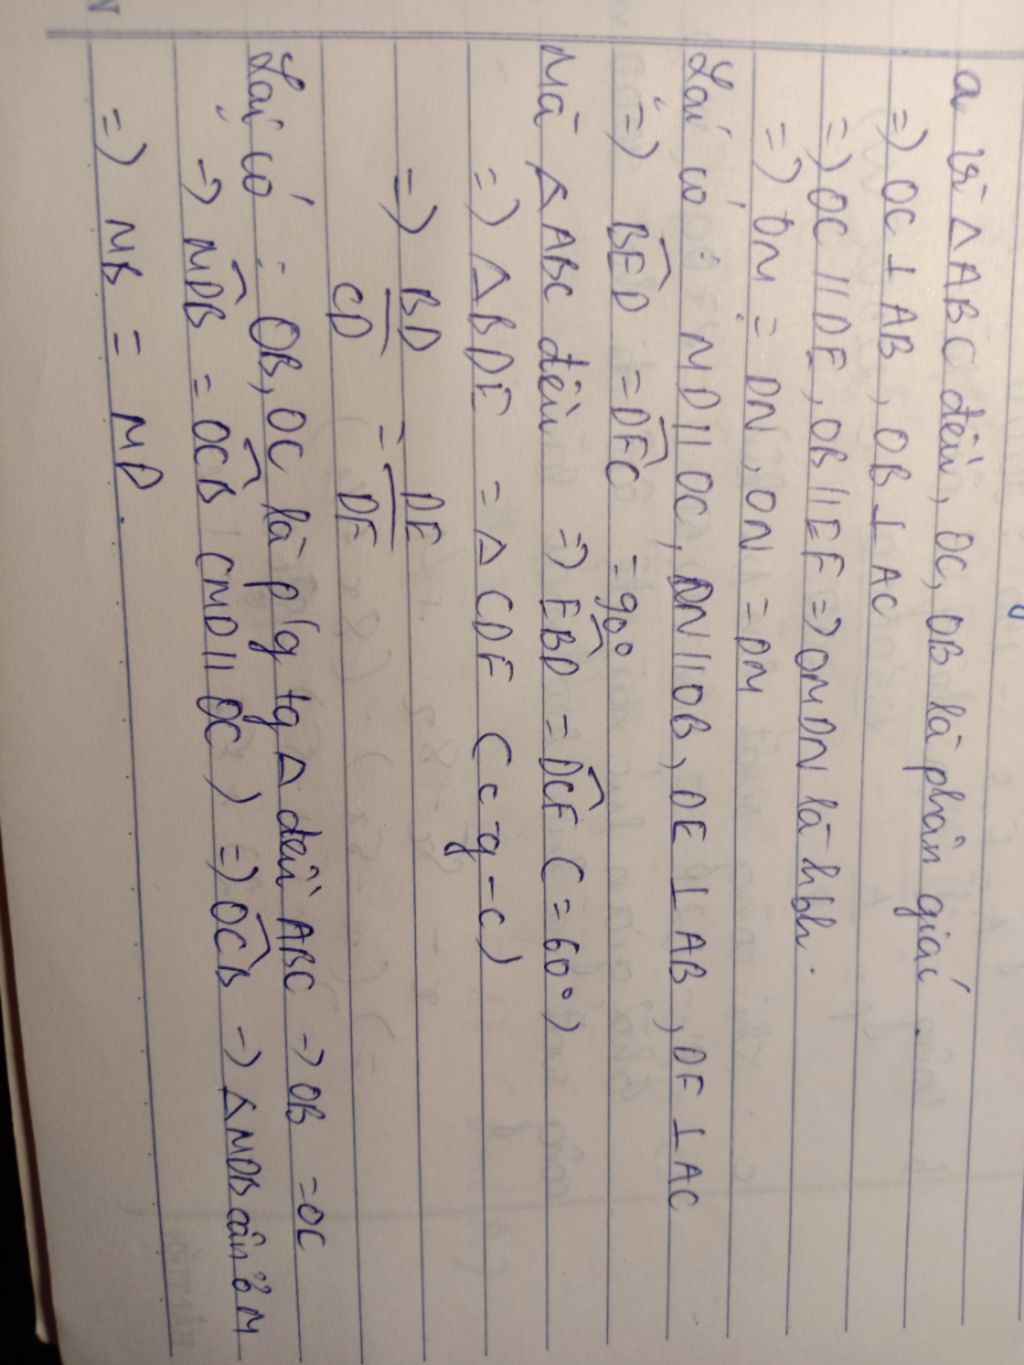 a. Vì △ABC đều, OC, OB là phân giác.
=) OC ⊥ AB, OB ⊥ AC
=) OC // DE, OB // EF => OMDN là hbh.
=) OM = DN, ON = DM
Lại có: MD // OC, DN // OB, DE ⊥ AB, DF ⊥ AC
=) BED = DFC = 90°
Mà △ABC đều => EBD = DCF (= 60°)
=) △BDE = △CDF (c-g-c)
=) BD/CD = DE/DF
Lại có: OB, OC là p/g tg △ đều ABC -> OB = OC
-> MDB = OCB (MD // OC) => OCB -> △MDB cân ở M
=) MB = MD.